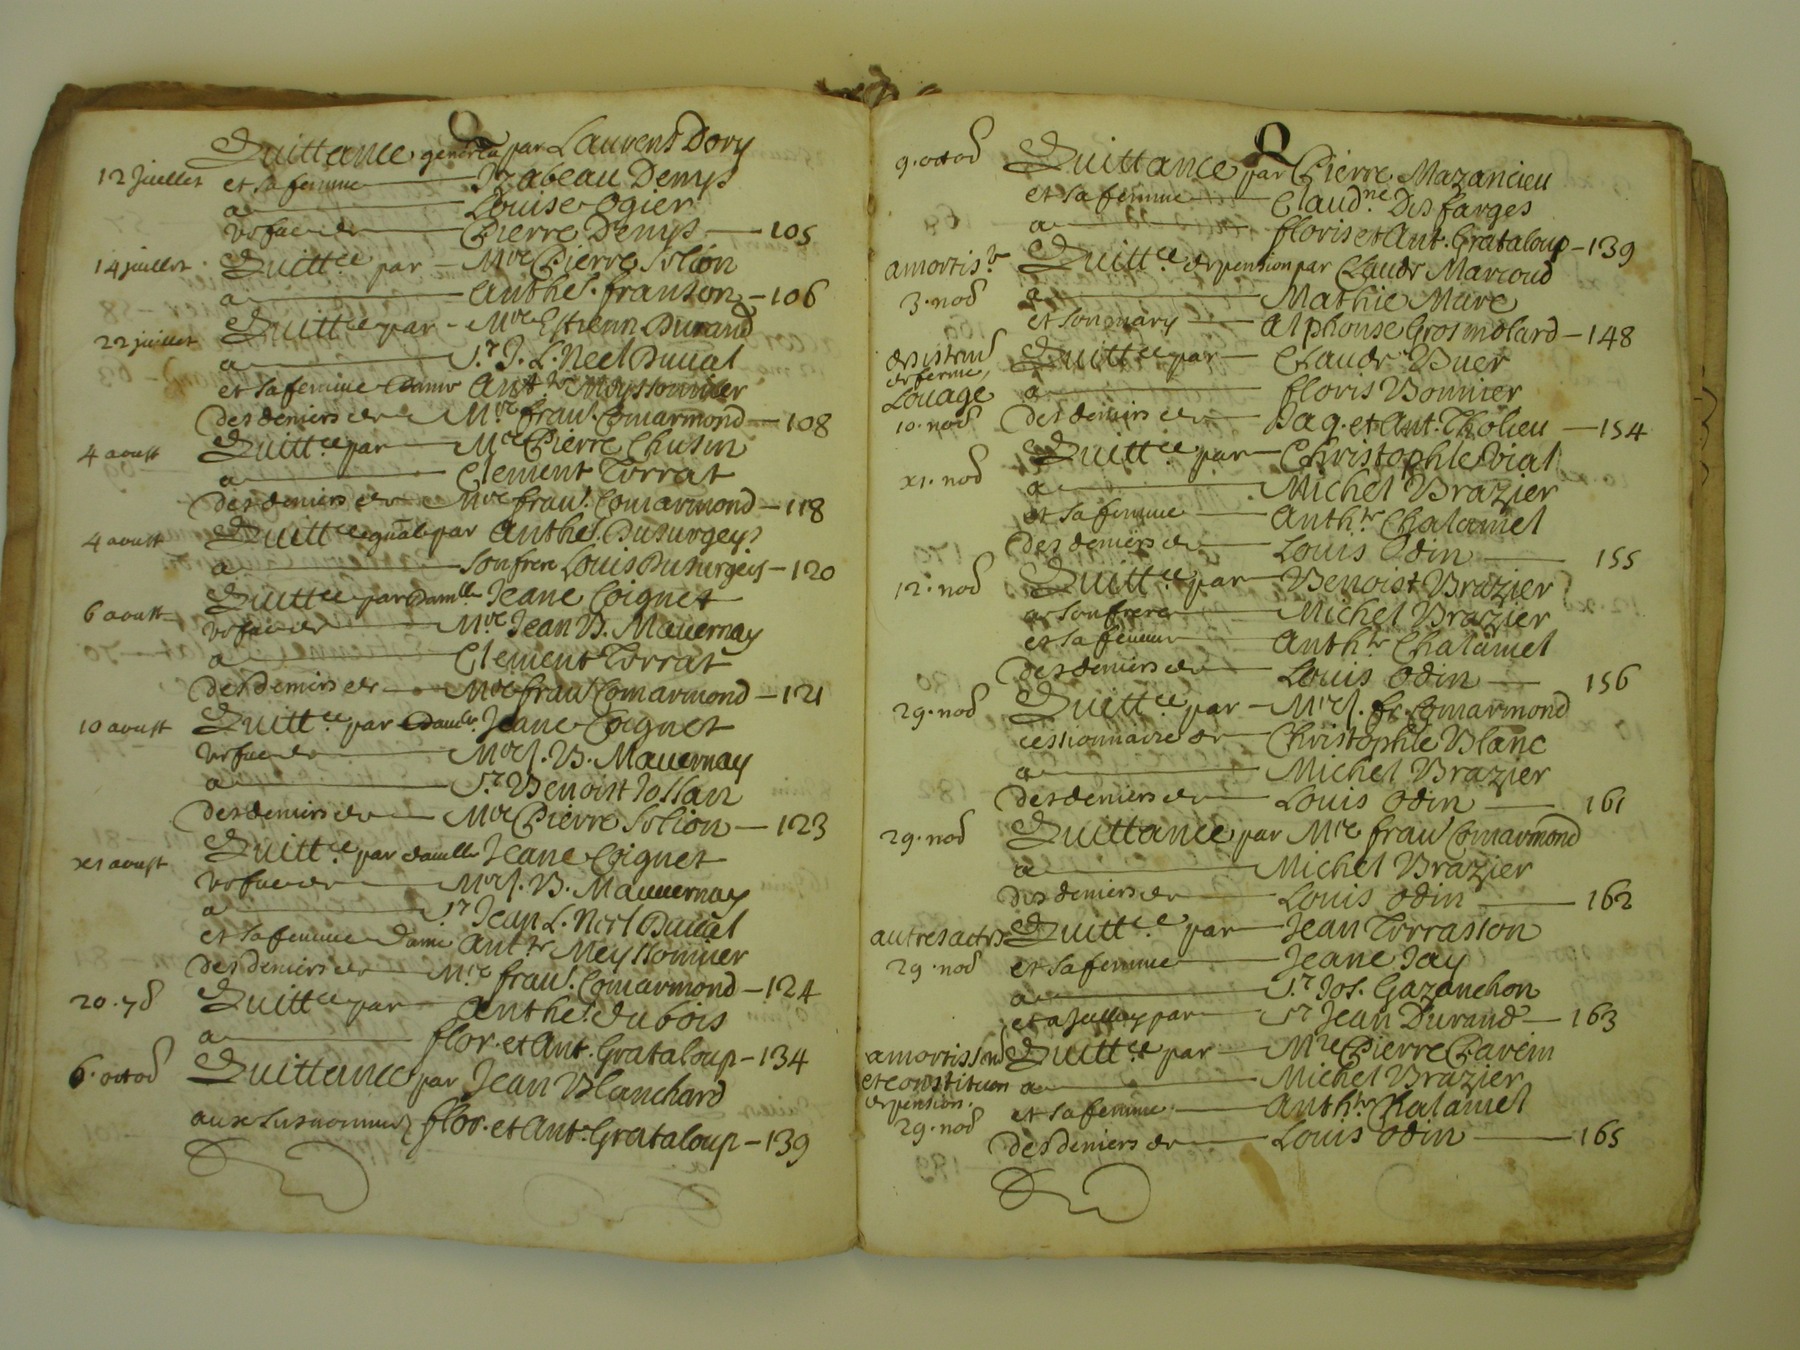 Q
Quittance gen̄ralle par Laurens Dory
12 Juillet et sa femme Izabeau Denys
a Louise Ogier
vefue de Pierre Denys 105
14 juillet Quitt.ce par Mre Pierre Solion
a Anthe. franson 106
22 juillet Quittce par Mre Estienn Durand
a S.r J. L. Neel Duual
et sa femme dame Anth.e Meyssonnier
des deniers de Mre frau. Comarmond 108
4 aoust Quitt.ce par Mre Pierre Chusin
a Clement Torrat
des deniers de Mre frau. Comarmond 118
4 aoust Quittce par Anthe. Dusurgeys
a son frere Louis Dusurgeys 120
6 aoust Quittce par Damlle Jeane Coignet
vefue de Mre Jean B. Mauernay
a Clement Torrat
des deniers de Mre frau. Comarmond 121
10 aoust Quitt.ce par Damlle Jeane Coignet
vefue de Mre J. B. Mauernay
a S.r Benoist Jollan
des deniers de Mre Pierre Solion 123
xi aoust Quitt.ce par damlle Jeane Coignet
vefue de Mre J. B. Mauuernay
a S.r Jean L. Neel Duual
et sa femme dame Anthe. Meyssonnier
des deniers de Mre frau. Comarmond 124
20. 7b Quittce par Anthe. dubois
a flor. et Ant. Grataloup 134
6. octob Quittance par Jean Blanchard
aux susnommés flor. et Ant. Grataloup 139
Q
9. octob Quittance par Pierre Mazancieu
et sa femme Claudne Desfarges
a floris et Ant. Grataloup 139
amortis.t Quitt.ce de pension par Claude Marcoud
3. nob a Mathie Mure
et son mary Alphonse Grosmolard 148
Quittce par Claude Buer
de ferme, a floris Bonnier
Louage
10. nob des deniers de Jaq. et Ant. Tholieu 154
xi. nob Quitt.ce par Christophle Vial
a Michel Brazier
et sa femme Anthe Chalamel
des deniers de Louis Odin 155
12. nob Quitt.ce par Benoist Brazier
a son frere Michel Brazier
et sa femme Anthe Chalamel
des deniers de Louis Odin 156
29. nob Quitt.ce par Mre J. fr. Comarmond
cessionnaire de Christophle Blanc
a Michel Brazier
des deniers de Louis Odin 161
29. nob Quittance par Mre frau Comarmond
a Michel Brazier
des deniers de Louis Odin 162
autres actes Quitt.ce par Jean Torrasson
29. nob et sa femme Jeane Jay
a S.r Jos. Gazanchon
par S.r Jean Durand 163
Quitt.ce par Mre Pierre Chavein
et constitution a Michel Brazier
de pension. et sa femme Anthe Chalamel
29. nob
des deniers de Louis Odin 165